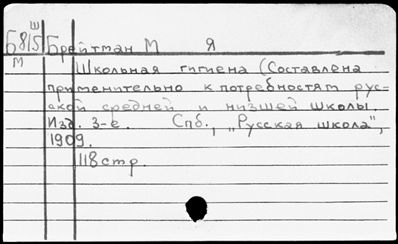 Ш
Б815 Брейтман М Я
М
Школьная гигиена (Составлена
применительно к потребностям рус-
ской средней и низшей школы.
Изд. 3-е. Спб., „Русская школа",
1909.
118 стр.